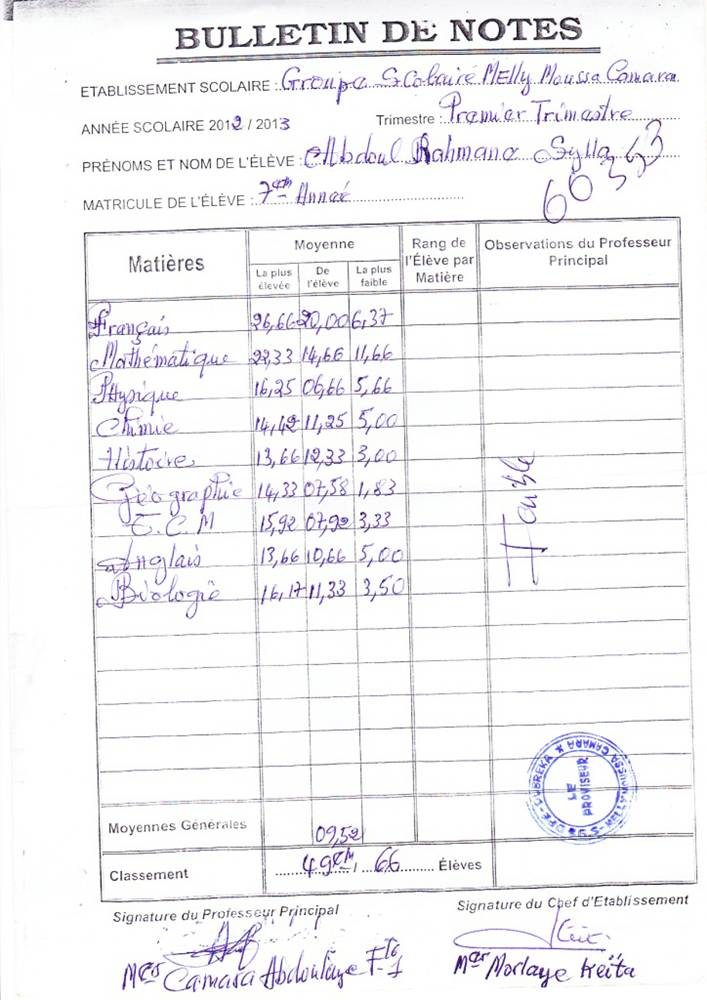 BULLETIN DE NOTES
ETABLISSEMENT SCOLAIRE : Groupe Scolaire MElly Moussa Camara
ANNÉE SCOLAIRE 2012 / 2013 Trimestre : Premier Trimestre
PRÉNOMS ET NOM DE L'ÉLÈVE : Abdoul Rahmane Sylla
MATRICULE DE L'ÉLÈVE : 7em Année
Matières Moyenne Rang de l'Élève par Matière Observations du Professeur Principal
La plus élevée De l'élève La plus faible
Français 26,66 20,00 6,37
Mathématique 22,33 14,66 11,66
Physique 16,25 06,66 5,66
Chimie 14,42 11,25 5,00
Histoire 13,66 12,33 3,00
Géographie 14,33 07,58 1,83
E.C.M 15,92 07,92 3,33
Anglais 13,66 10,66 5,00
Biologie 16,17 11,33 3,50
Faible
LE PROVISEUR
Moyennes Générales 09,52
Classement 49em / 66 Élèves
Signature du Professeur Principal Signature du Chef d'Etablissement
Mer Camara Abdoulaye Mer Morlaye Keïta